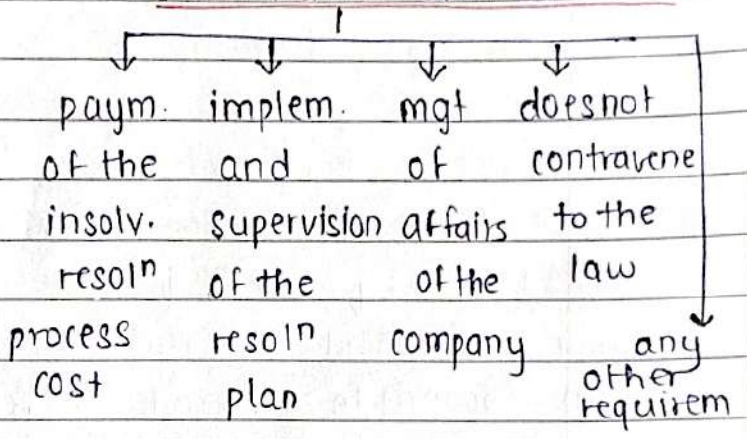 paym.
of the
insolv.
resoln
process
cost
implem.
and
supervision
of the
resoln
plan
mgt
of
affairs
of the
company
doesnot
contravene
to the
law
any
other
requirem